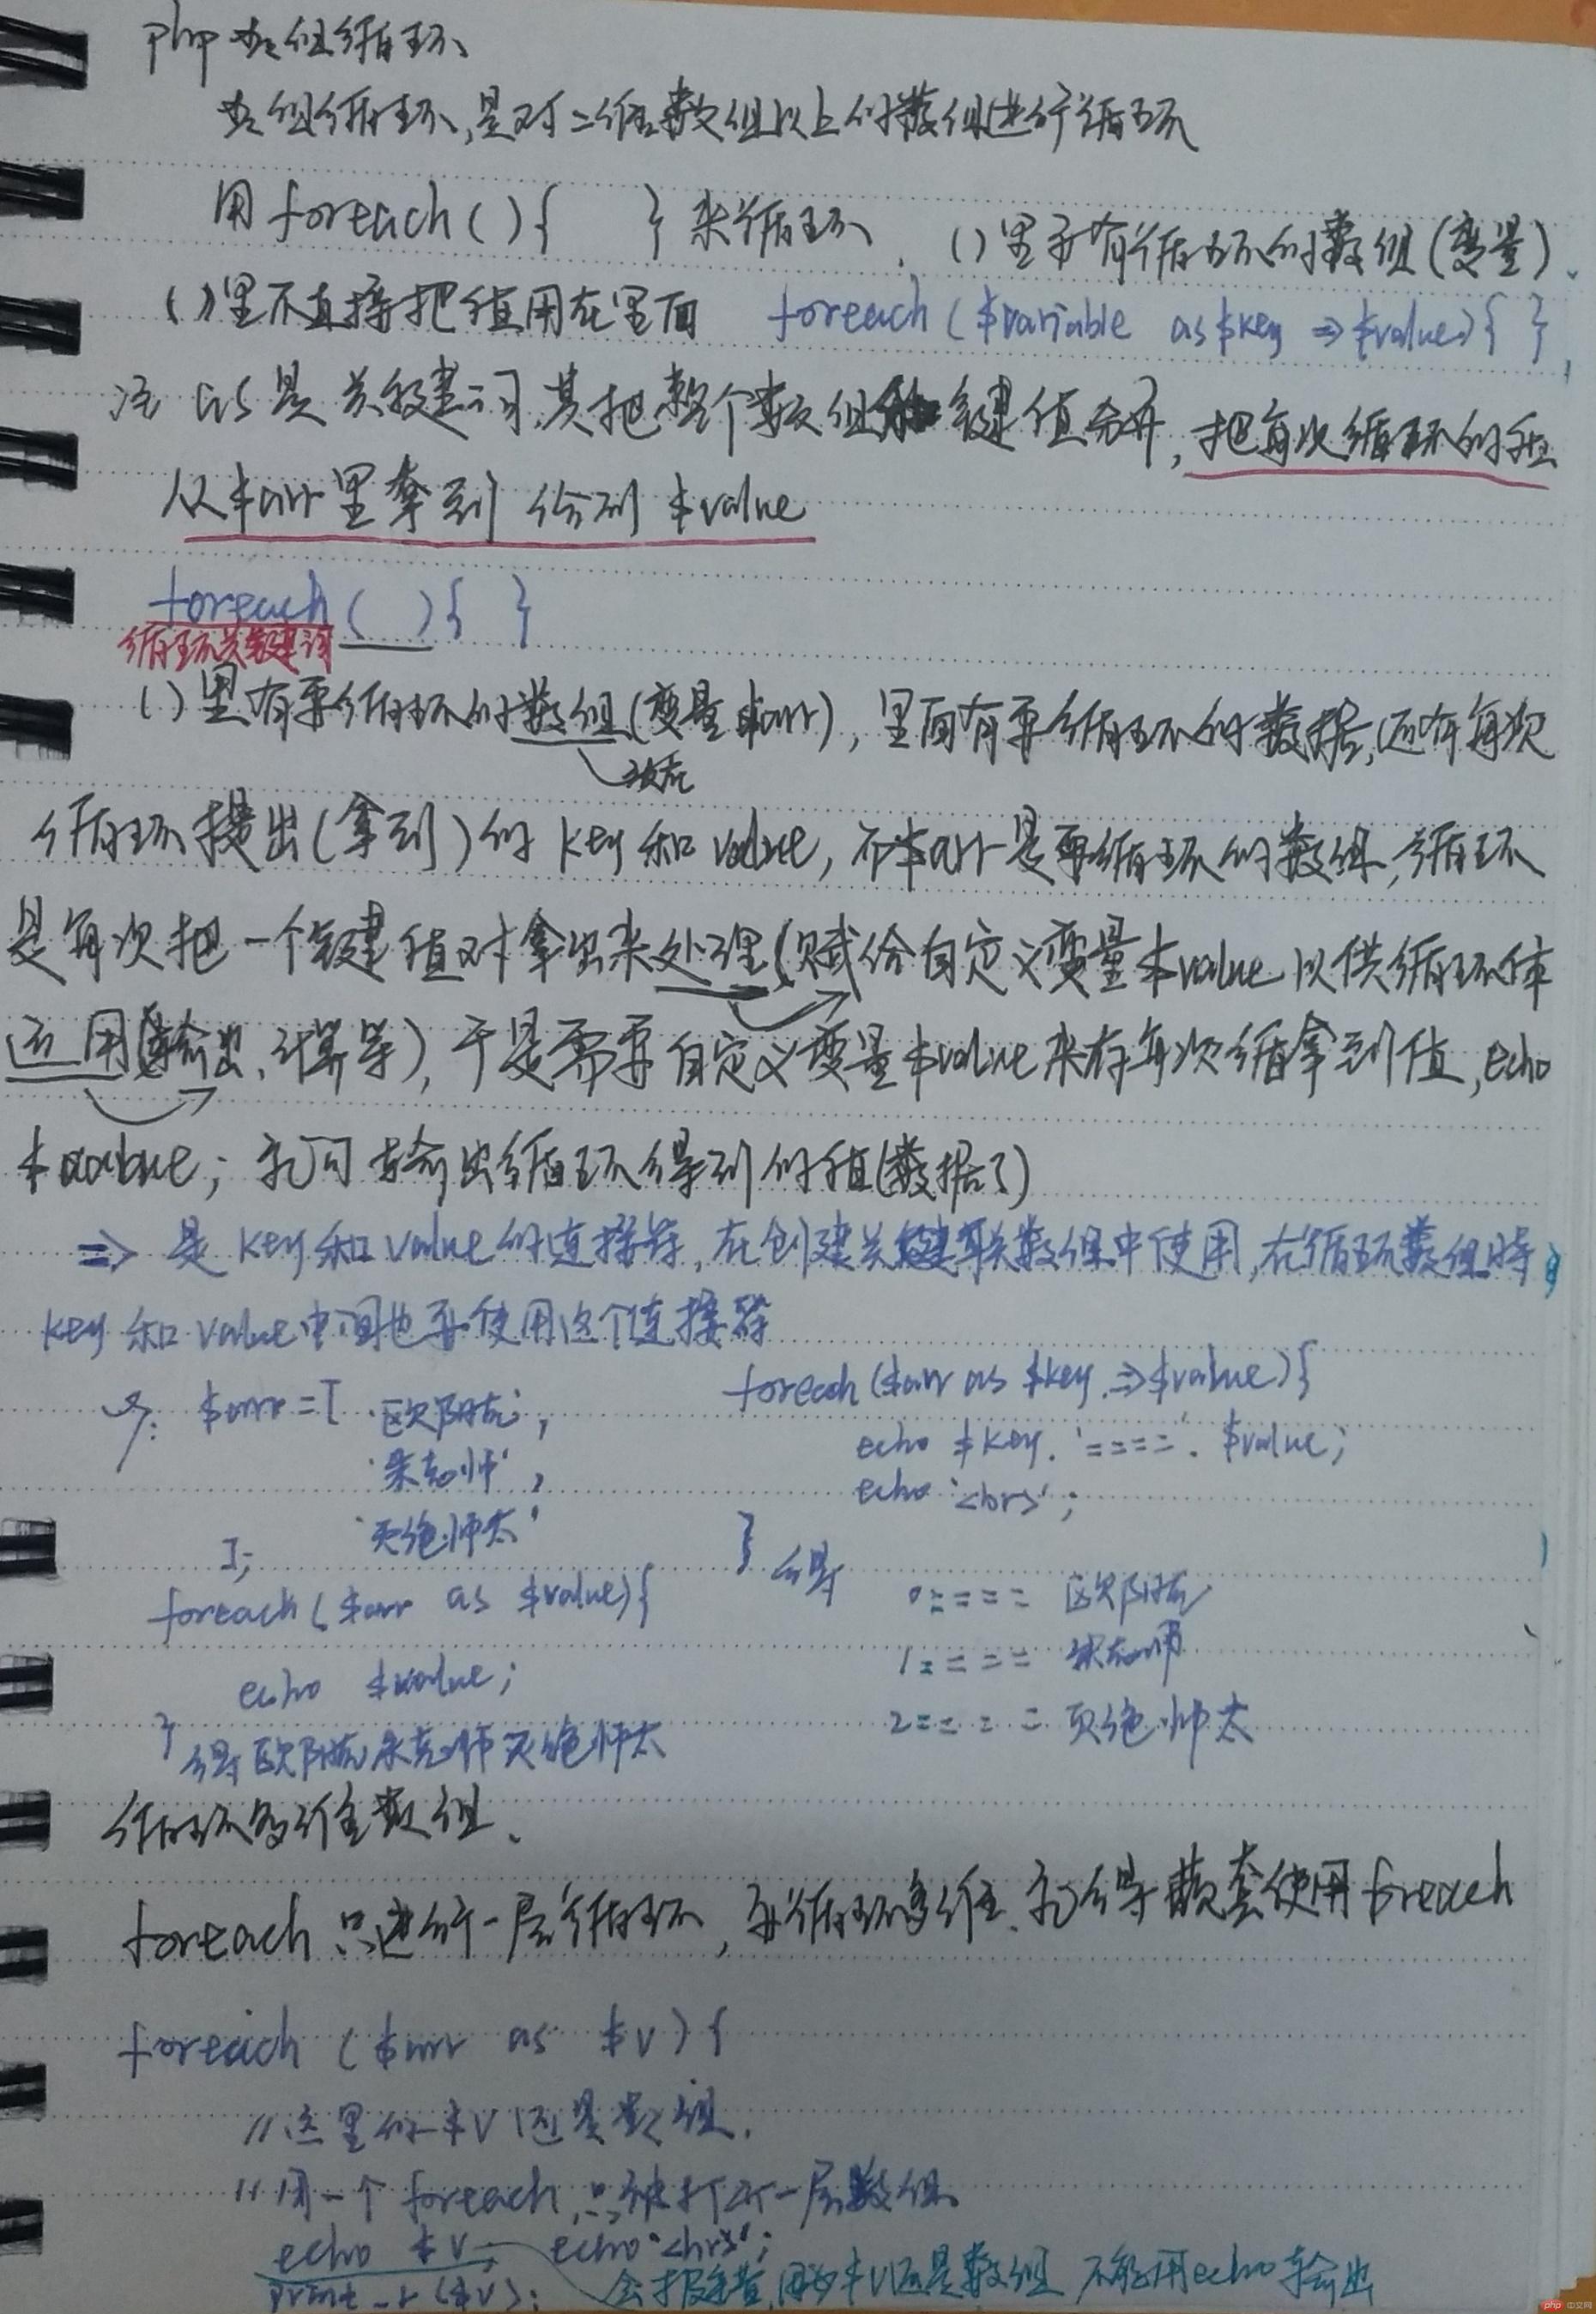 php 数组循环
数组循环,是对二维数组以上的数组进行循环
用 foreach(){ } 来循环. ()里要有循环的数组(变量).
()里不直接把值用在里面 foreach($variable as $key => $value){ }
注 as 是关键词,其把整个数组 键值分开,把每次循环的值
从$arr里拿到 给到 $value
foreach( ){ }
循环关键词
()里有要循环的数组(变量$arr),里面有要循环的数据,还有每次
循环提出(拿到)的 key 和 value, $arr是要循环的数组,循环
是每次把一个键值对拿出来处理(赋给自定义变量$value 以供循环体
运用(输出、计算等),于是需要自定义变量$value来存每次循拿到值,echo
$value; 就可输出循环得到的值(数据了)
=> 是 key 和 value 的连接符,在创建关联数组中使用,在循环数组时
key 和 value中间也要使用这个连接符
例: $arr = [ '欧阳克',
'朱老师',
'灭绝师太'
];
foreach( $arr as $value){
echo $value;
}
得 欧阳克朱老师灭绝师太
foreach ($arr as $key => $value){
echo $key. '===='. $value;
echo '<hr>';
}
得 0==== 欧阳克
1==== 朱老师
2==== 灭绝师太
循环多维数组.
foreach 只进行一层循环, 要循环多维、就得嵌套使用 foreach
foreach ( $arr as $v ) {
// 这里的 $v 还是数组.
// 用一个 foreach,只能打开一层数组.
echo $v echo '<hr>';
print_r ($v); 会报错,因为$v还是数组 不能用echo输出
php 中文网